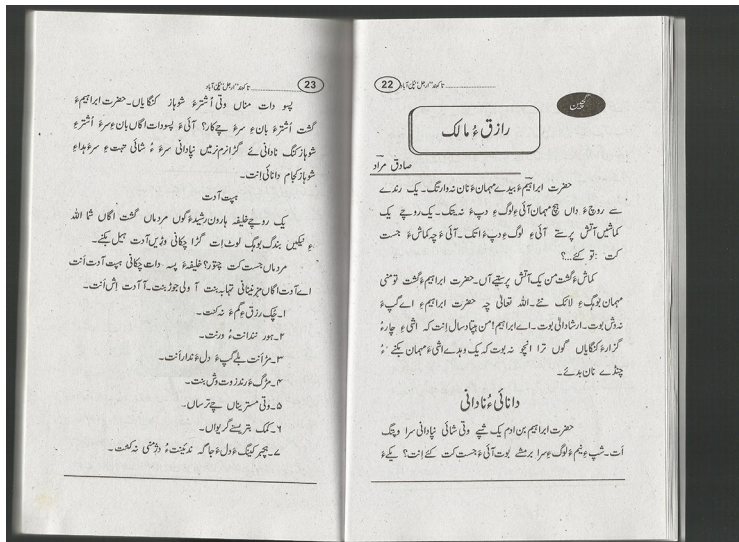 22 تاکبند "ارمل" نچین آباد
گچین
رازق ءُ مالک
صادق مراد
حضرت ابراہیمؑ ءَ بیدے مہمان ءَ نان نہ وارتگ۔ یک رندے
سے روچ ءَ داں ہچ مہمان آئی ءِ لوگ ءِ دپ ءَ نہ بتگ۔ یک روچے یک
کماشیں آتش پرستے آئی ءِ لوگ ءِ دپ ءَ اتک۔ آئی ءَ چہ کماش ءَ جست
کت: تو کئے...؟
کماش ءَ گشت من یک آتش پرستے آں۔ حضرت ابراہیم ءَ گشت تو منی
مہمان بوہگ ءِ لائک نئے۔ اللہ تعالیٰ چہ حضرت ابراہیم ءِ اے گپ ءَ
نہ وش بوت۔ ارشاد ائی بوت۔ اے ابراہیم! من ہپتاد سال اِنت کہ اشی ءِ چارءُ
گزارءَ کنگایاں گوں ترا انچو نہ بوت کہ یک وہدے اشی ءَ مہمان بکنے ءُ
چنڈے نان بدئے۔
دانائی ءُ نادانی
حضرت ابراہیم بن ادہم یک شپے وتی شائی نپادانی سرا وپتگ
اَت۔ شپ ءِ نیم ءَ لوگ ءِ سرا برمشے بوت آئی ءَ جست کت کئے اِنت؟ یکے ءَ
23 تاکبند "ارمل" نچین آباد
پسو دات مناں وتی اُشترءَ شوہاز کنگایاں۔ حضرت ابراہیم ءَ
گشت اُشترءَ بان ءِ سرءَ چے کار؟ آئی ءَ پسو دات اگاں بان ءِ سرءَ اُشترءِ
شوہاز کنگ نادانی ئے گڑا نرم نرمیں نپادانی سرءَ ءُ شائی تہت ءِ سرءَ ہداءِ
شوہاز کجام دانائی اِنت۔
ہپت آدت
یک روچے خلیفہ ہارون رشیدءَ گوں مردماں گشت اگاں شما اللہ
ءِ نیکیں بندگ بوہگ لوٹ اِت گڑا چکانی وڑیں آدت ہیل بکنے۔
مردماں جست کت چتور؟ خلیفہ ءَ پسہ دات چکانی ہپت آدت اَنت
اے آدت اگاں مزنینانی تہا بہ بنت آ ولی جوڑ بنت۔ آ آدت اِش اَنت۔
۱۔ چُک رزق ءِ گم ءَ نہ کنت۔
۲۔ ہور نندانت ءُ ورنت۔
۳۔ مڑاَنت بلے گپ ءَ دل ءَ نداراَنت۔
۴۔ مڑگ ءَ رند زوت وش بنت۔
۵۔ وتی مستریناں چے ترساں۔
۶۔ کمک بترسینے گریواں۔
۷۔ ہچبر کینگ ءَ دل ءَ جاگہ ندئینت ءُ دژمنی نہ کنت۔